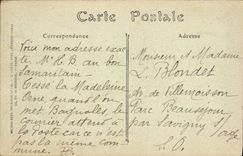 Carte Postale
Correspondance
Adresse
Voici mon adresse exacte
Mr H B au bon
Samaritain
Tessé la Madeleine
Orne quand l'on
met Bagnoles, le
courrier attend à
la Poste car ce n'est
pas la même com
mune.
Monsieur et Madame
L. Blondet
Av de Villemoisson
Parc Beauséjour
par Savigny
S. O.